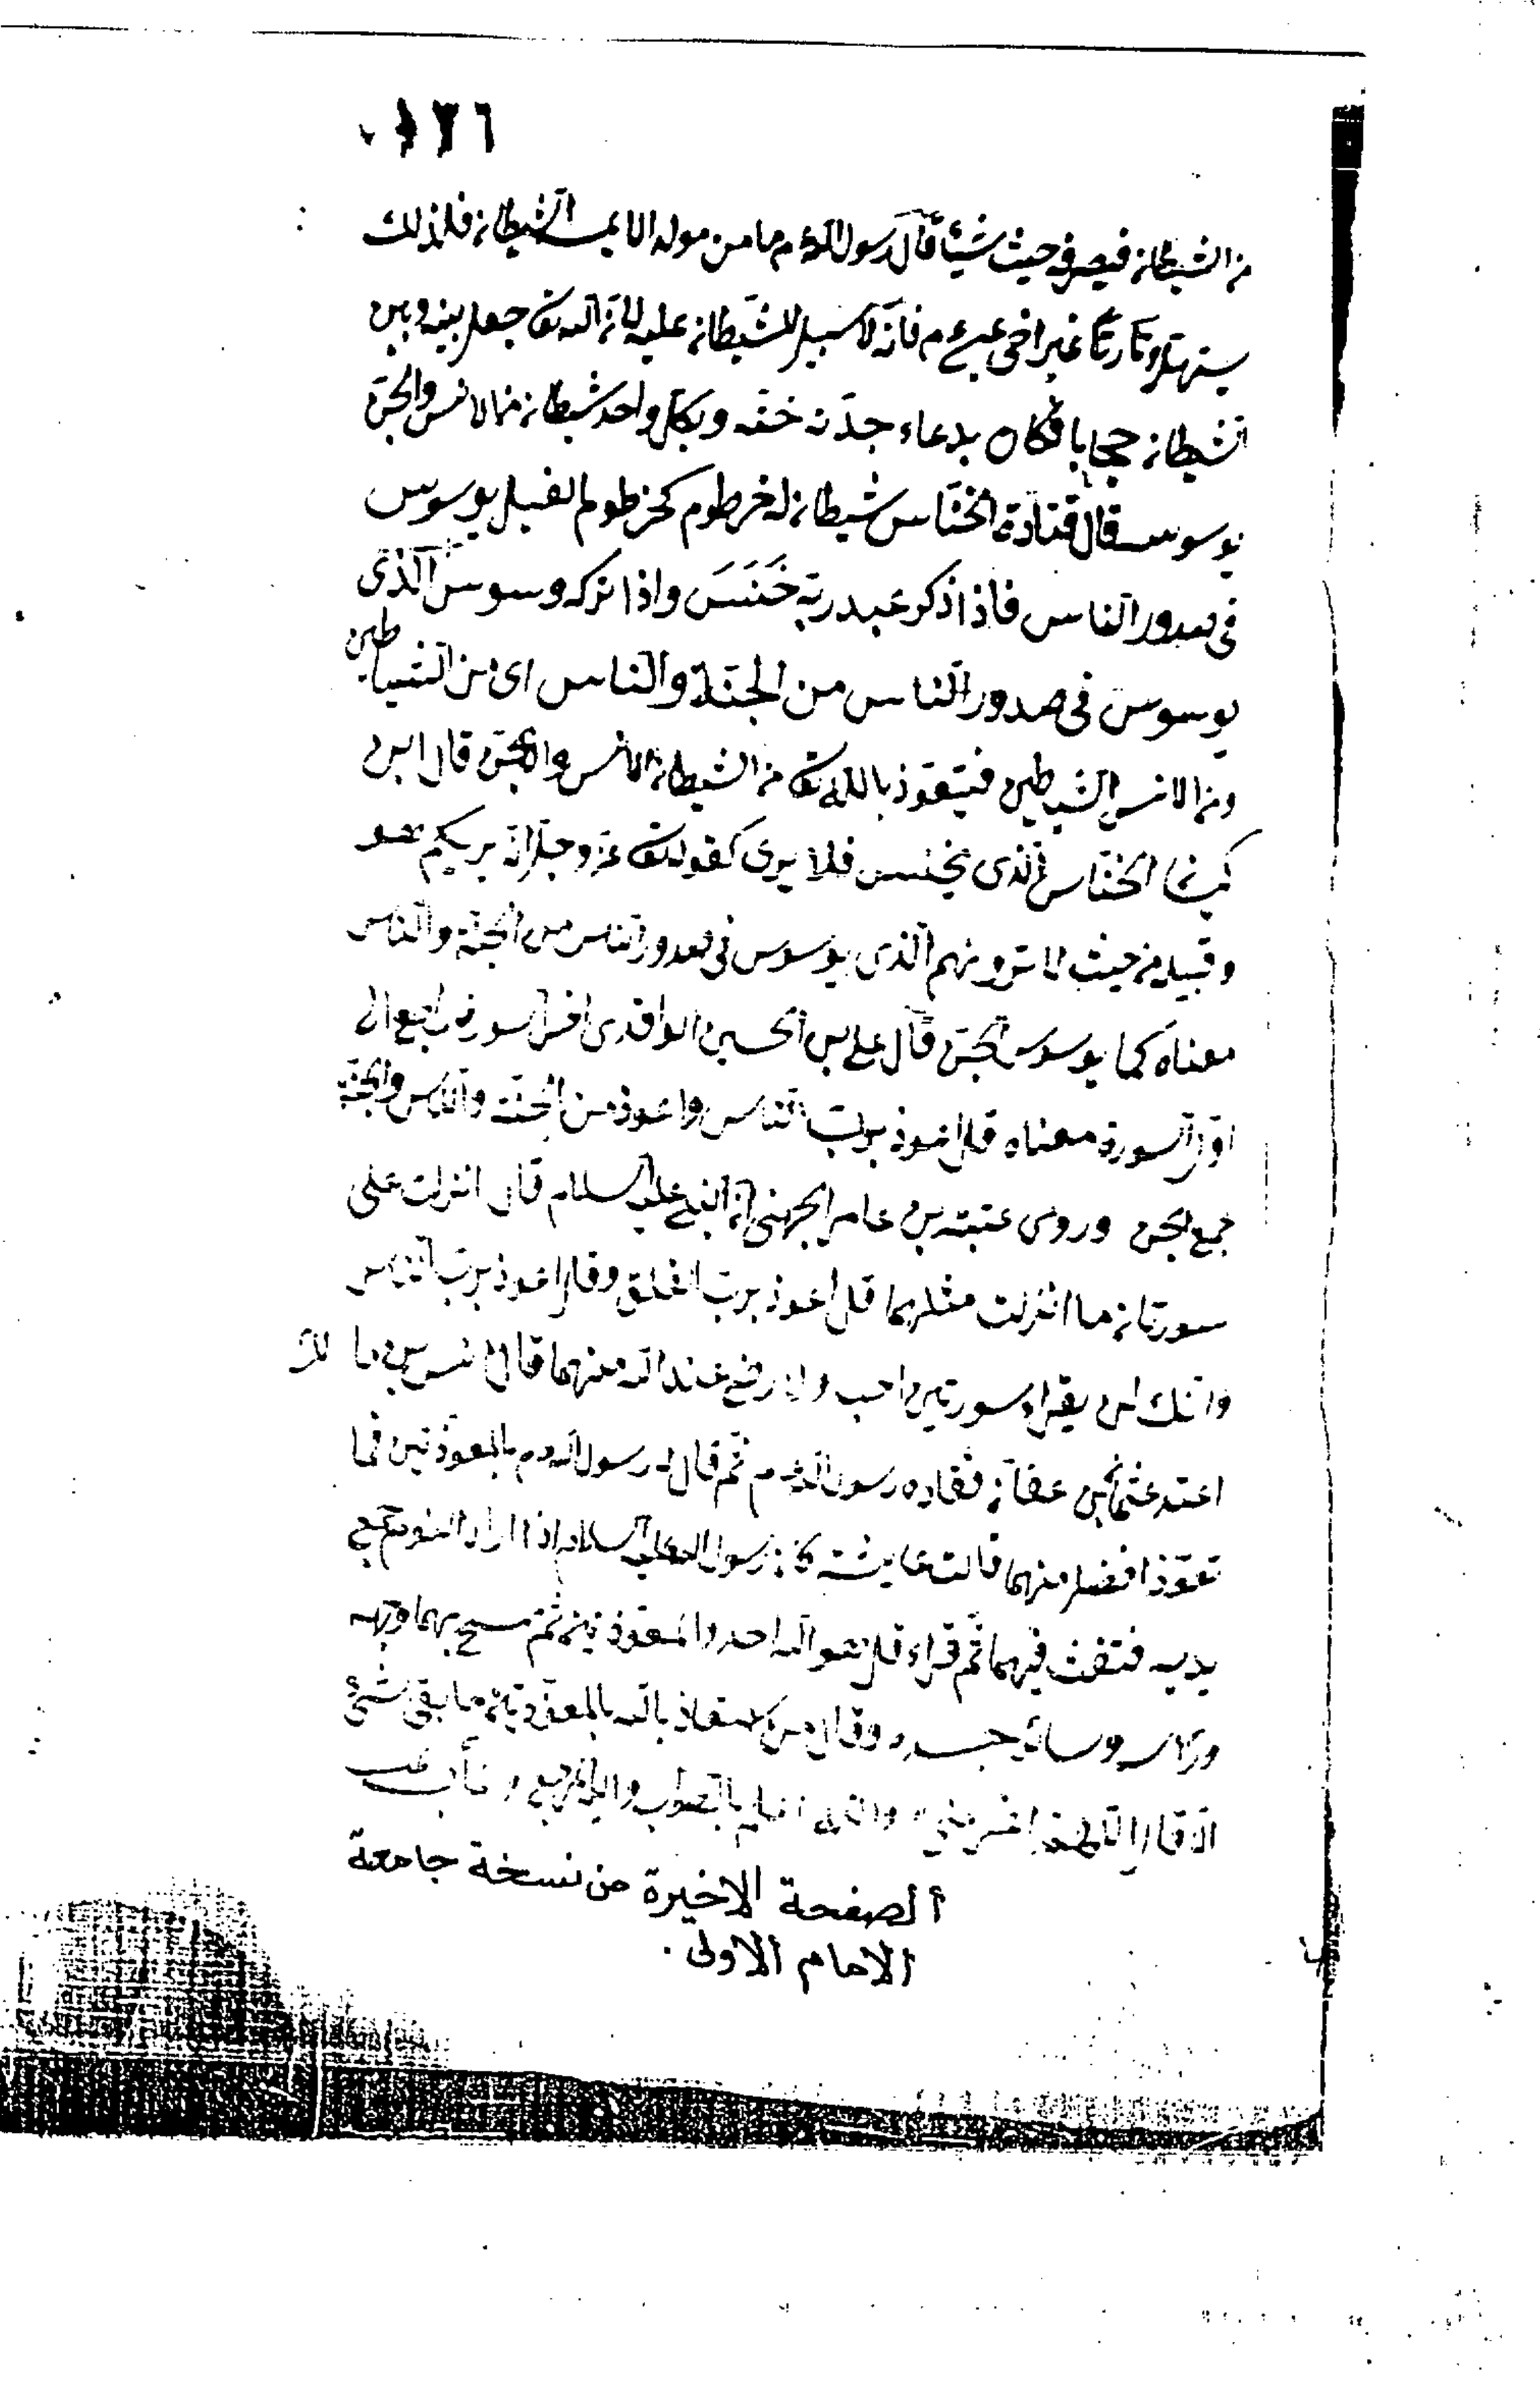 ١٢٦
من الشيطان فيصرفه حيث شيئا قال رسول الله م ما من مولد الا يمسه الشيطان فلذلك
يستهل غير اخى عيسى م فانه لا سبيل للشيطان عليه لان الله تعا جعل بينه وبين
الشيطان حجابا فكان بدعاء جدته حنه وبكل واحد شيطان من الانس والجن
يوسوسه قال قتادة الخناس شيطان له خرطوم كخرطوم الفيل يوسوس
فى صدور الناس فاذا ذكر عبد ربه خَنَسَ واذا تركه وسوس الذى
يوسوس فى صدور الناس من الجنة والناس اى من الشياطين
ومن الانس الشياطين فيتعوذ بالله تعا من الشيطان الانس والجن قال ابن
الخناس الذى يخنس فلا يرى كقوله تعا عز وجل انه يريكم هو
وقبيله من حيث لا ترونهم الذى يوسوس فى صدور الناس من الجنة والناس
معناه كما يوسوس الجن قال على بن الحسين الواقدى اخر السورة راجع الى
اول السورة معناه قل اعوذ برب الناس واعوذ من الجنة والناس والجنة
جمع الجن وروى عتبة بن عامر الجهنى ان النبى عليه السلام قال انزلت على
سورتان ما انزلت مثلهما قل اعوذ برب الفلق وقل اعوذ برب الناس
وانك لن يقراء سورتين احب ولا ارضى عند الله منهما قال انس بن مالك
عثمان بن عفان فعاده رسول الله م ثم قال له رسول الله م بالمعوذتين فما
تعوذ افضل منهما قالت عايشه كان رسول الله عليه السلام اذا اراد النوم يجمع
يديه فتنفث فيهما ثم قراء قل هو الله احد والمعوذتين ثم مسح بهما وجهه
وراسه وسائر جسده وقال من استعاذ بالله بالمعوذتين ما بقى شئ
الا قال والله اعلم بالصواب واليه المرجع
الصفحة الاخيرة من نسخة جامعة
الامام الاولى.